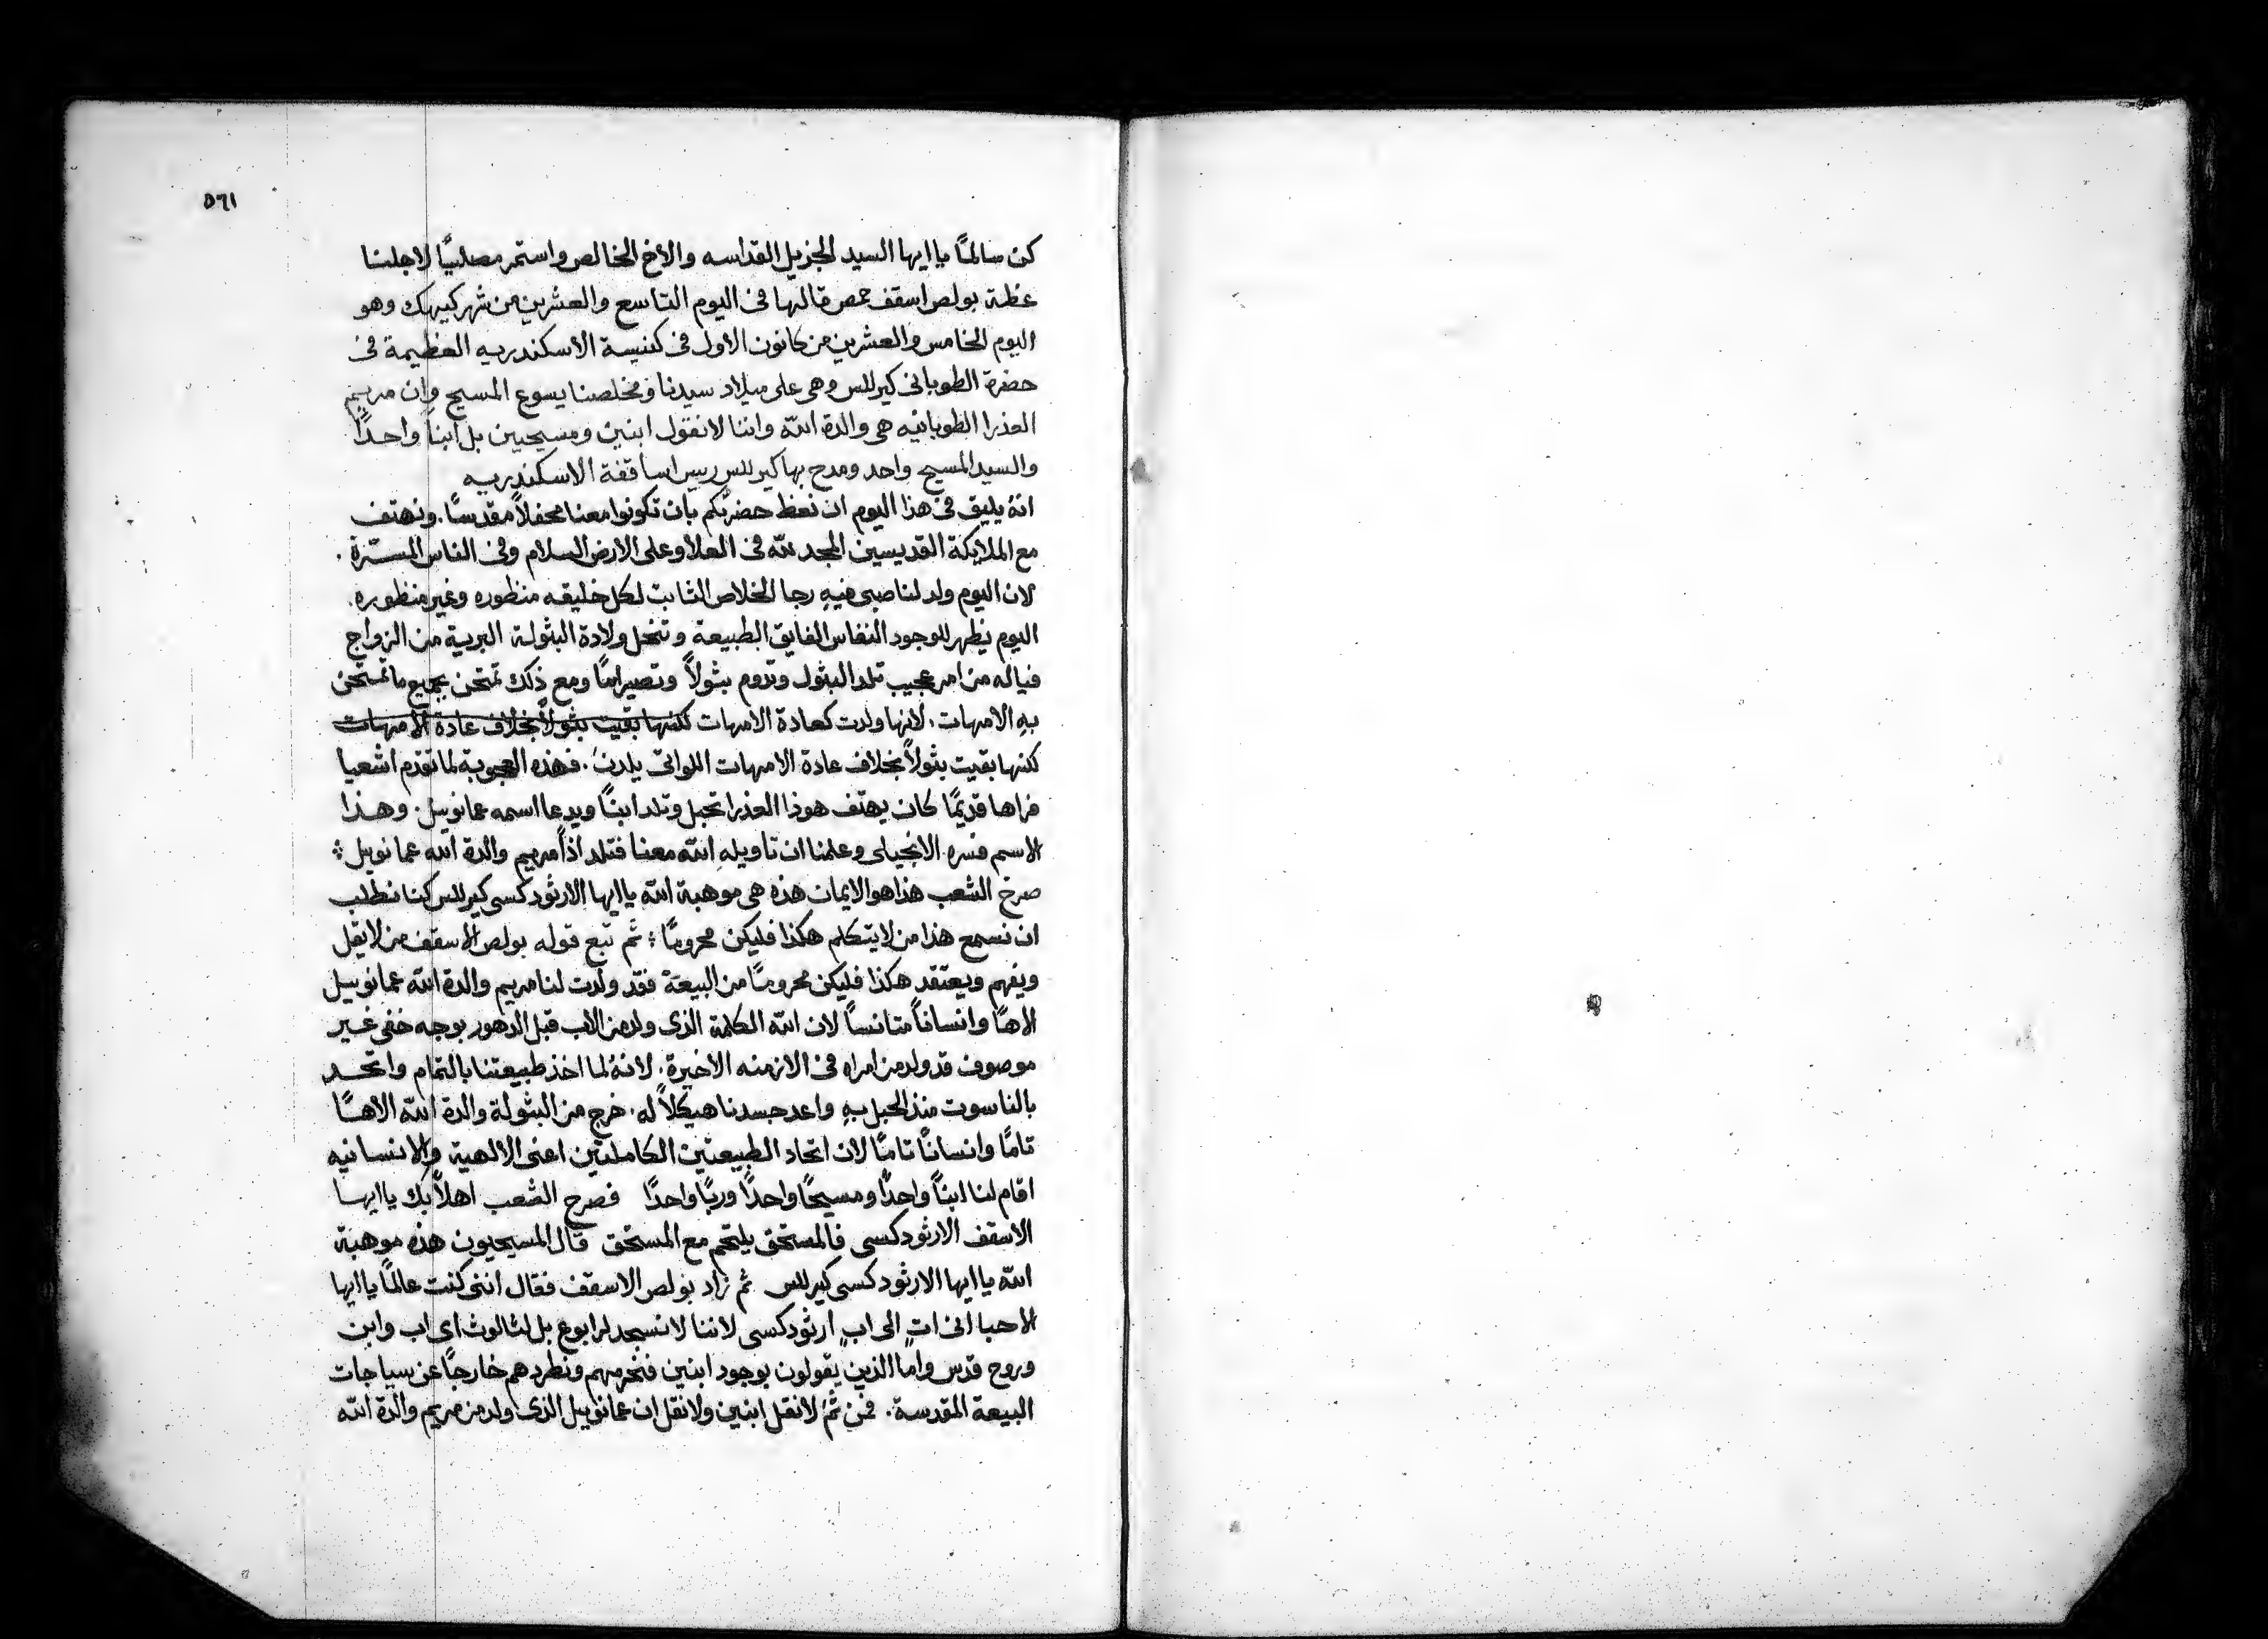 ٥٦١
كن سالمًا يا ايها السيد الجزيل القداسه والاخ الخالص واستمر مصليًا لاجلنا
عظة بولص اسقف حمص قالها فى اليوم التاسع والعشرين من شهر كيهك وهو
اليوم الخامس والعشرين من كانون الاول فى كنيسة الاسكندريه العظيمة فى
حضرة الطوبانى كيرللس وهى على ميلاد سيدنا ومخلصنا يسوع المسيح وان مريم
العذرا الطوبانيه هى والدة الله واننا لا نقول ابنين ومسيحيين بل ابنًا واحدًا
والسيد المسيح واحد ومدح بها كيرللس رييس اساقفة الاسكندريه
انهُ يليق فى هذا اليوم ان نعظ حضرتكم بان تكونوا معنا محفلاً مقدسًا. ونهتف
مع الملايكة القديسين المجد لله فى العلا وعلى الارض السلام وفى الناس المسرّة .
لان اليوم ولد لنا صبى فيهِ رجا الخلاص الثابت لكل خليقه منظوره وغير منظوره.
اليوم يظهر للوجود النفاس الفايق الطبيعة وتنحل ولادة البثولة البرية من الزواج
فياله من امر عجيب تلد البثول وتدوم بثولاً وتصير امًا ومع ذلك تمتحن بجميع ما تمتحن
بهِ الامهات. لانها ولدت كعادة الامهات لكنها بقيت بثولاً بخلاف عادة الامهات
لكنها بقيت بثولاً بخلاف عادة الامهات اللواتى يلدنَ. فهذه العجوبة لما تقدم اشعيا
فراها قديمًا كان يهتف هوذا العذرا تحبل وتلد ابنًا ويدعا اسمه عمانوييل. وهذا
الاسم فسره الانجيلى وعلمنا ان تاويلهِ الله معنا فتلد اذاً مريم والدة الله عمانوييل ؛
صرخ الشعب هذا هو الايمان هذه هى موهبة الله يا ايها الارثودكسى كيرللس كنا نطلب
ان نسمع هذا من لا يتكلم هكذا فليكن محرومًا ؛ ثم تبع قوله بولص الاسقف من لا يقل
ويفهم ويعتقد هكذا فليكن محرومًا من البيعة فقد ولدت لنا مريم والدة الله عمانوييل
الاهًا وانساناً متانساً لان الله الكلمة الذى ولد من الاب قبل الدهور بوجه خفى غير
موصوف قد ولد من امراه فى الازمنه الاخيرة. لانهُ لما اخذ طبيعتنا بالتمام واتحد
بالناسوت منذ الحبل بهِ واعد جسدنا هيكلاً له. خرج من البثولة والدة الله الاهًا
تامًا وانسانًا تامًا لان اتحاد الطبيعتين الكاملتين اعنى الالهية والانسانيه
اقام لنا ابنًا واحدًا ومسيحًا واحدًا وربًا واحدًا فصرح الشعب اهلاً بك يا ايها
الاسقف الارثودكسى فالمستحق يلتحم مع المستحق قال المسيحيون هذه موهبة
الله يا ايها الارثودكسى كيرللس ثم زاد بولص الاسقف فقال اننى كنت عالمًا يا ايها
الاحبا انى اتٍ الى ابٍ ارثودكسى لاننا لا نسجد لرابوع بل لثالوث اى اب وابن
وروح قدس واما الذين يقولون بوجود ابنين فنحرمهم ونطردهم خارجًا عن سياجات
البيعة المقدسة. فمن ثمَ لا نقل ابنين ولا نقل ان عمانوييل الذى ولد من مريم والدة الله